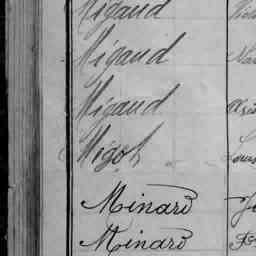 Migaud
Migaud
Migaud
Migot
Minard
Minard